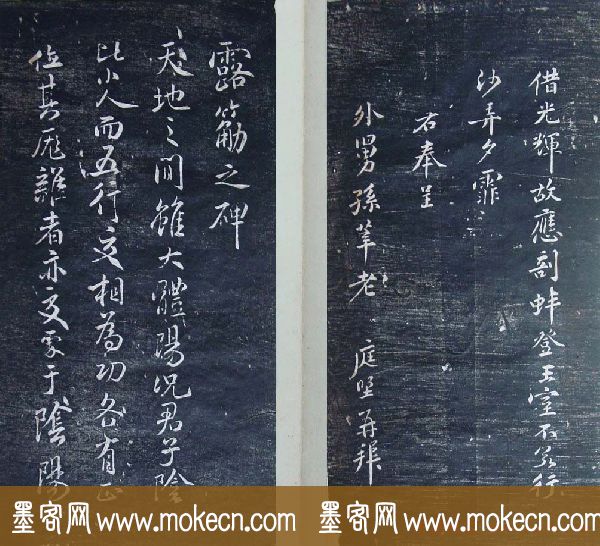 借光輝故應剖蚌登王室不若行
沙弄夕霏
右奉呈
外舅孫莘老 庭堅再拜
露筋之碑
天地之間雖大體陽況君子陰
比小人而五行交相為功各有正
位其厖雜者亦交雾于陰陽
墨客网 www.mokecn.com
墨客网 www.mokecn.com